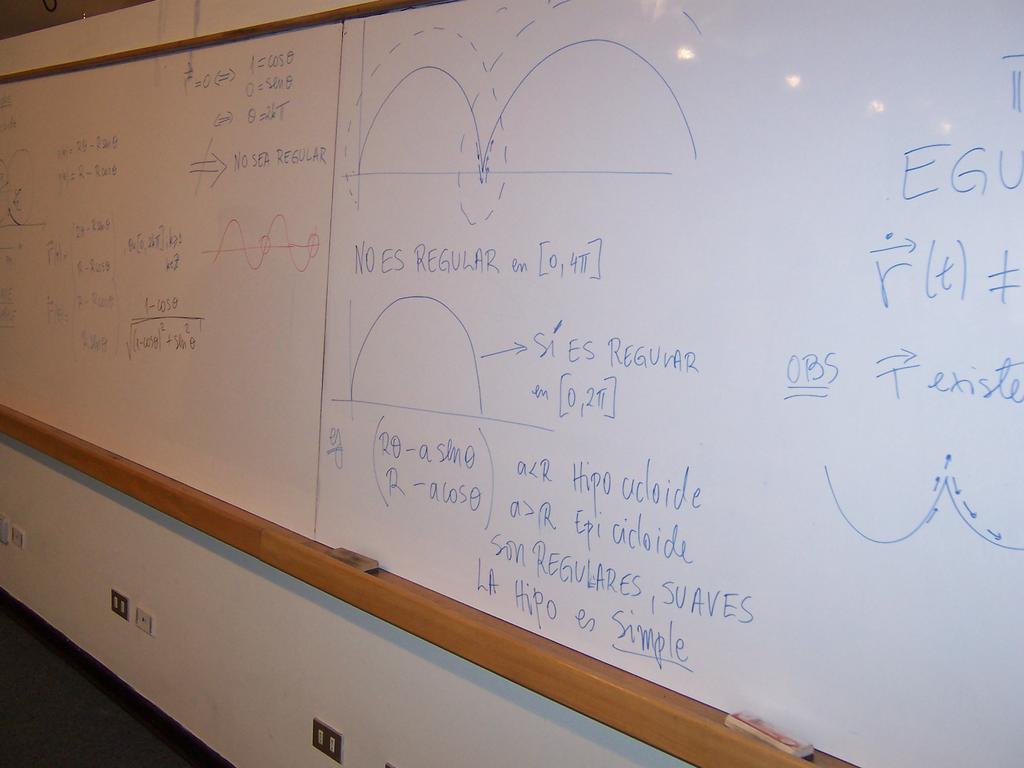 r⃗̇ = 0 ⇔ 1 = cosθ
0 = senθ
⇔ θ = 2kπ
⇏ NO SEA REGULAR
x(θ) = Rθ - R senθ
y(θ) = R - R cosθ
Rθ - R senθ
R - R cosθ
R - R cosθ
R senθ
1 - cosθ
√((1-cosθ)² + sen²θ)
NO ES REGULAR en [0, 4π]
→ SÍ ES REGULAR
en [0, 2π]
ej
Rθ - a senθ
R - a cosθ
a<R Hipo cicloide
a>R Epi cicloide
SON REGULARES, SUAVES
LA HIPO es Simple
EGU
r⃗̇(t) ≠
OBS T⃗ existe